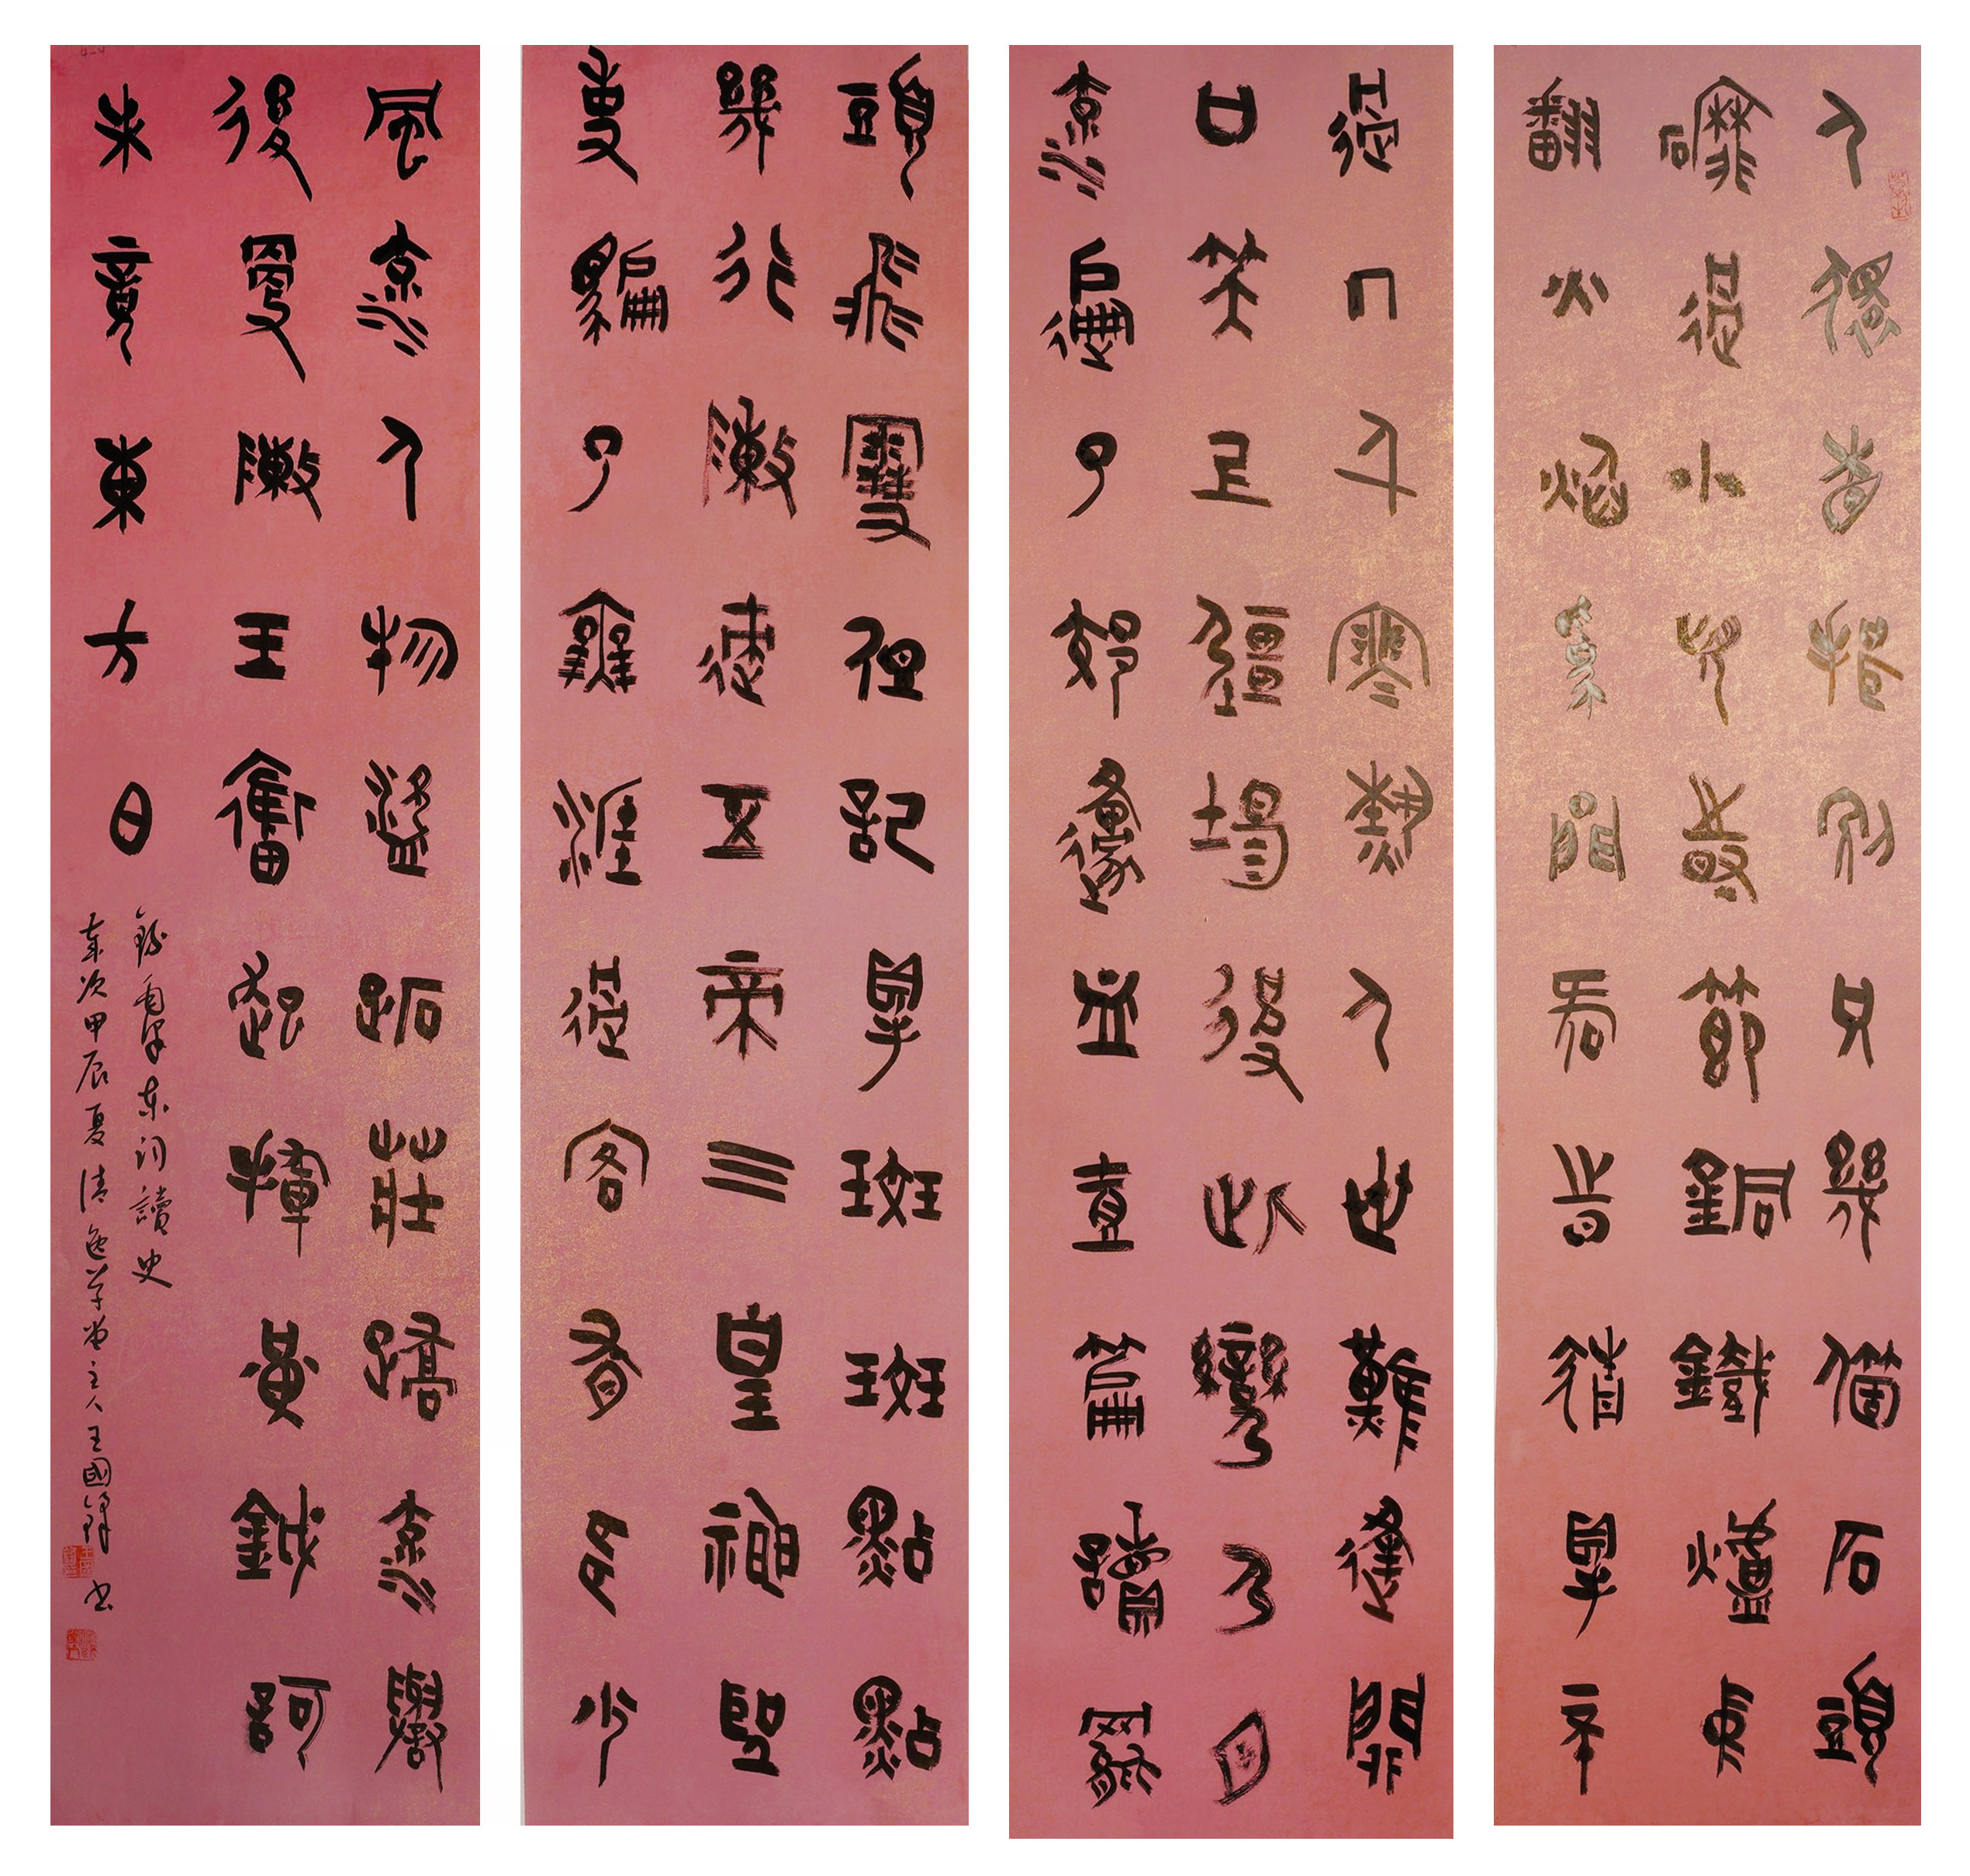 人猿相揖別只幾個石頭
磨過小兒時節銅鐵爐中
翻火焰為問何時猜得不
過几千寒熱人世難逢開
口笑上疆場彼此彎弓月
流遍了郊原血一篇讀罷
頭飛雪但記得斑斑點點
幾行陳迹五帝三皇神聖
事騙了無涯過客有多少
風流人物盜跖莊蹻流譽
後更陳王奮起揮黃鉞歌
未竟東方白
錄毛澤東詞讀史
歲次甲辰夏清逸草堂主人王國鋒書